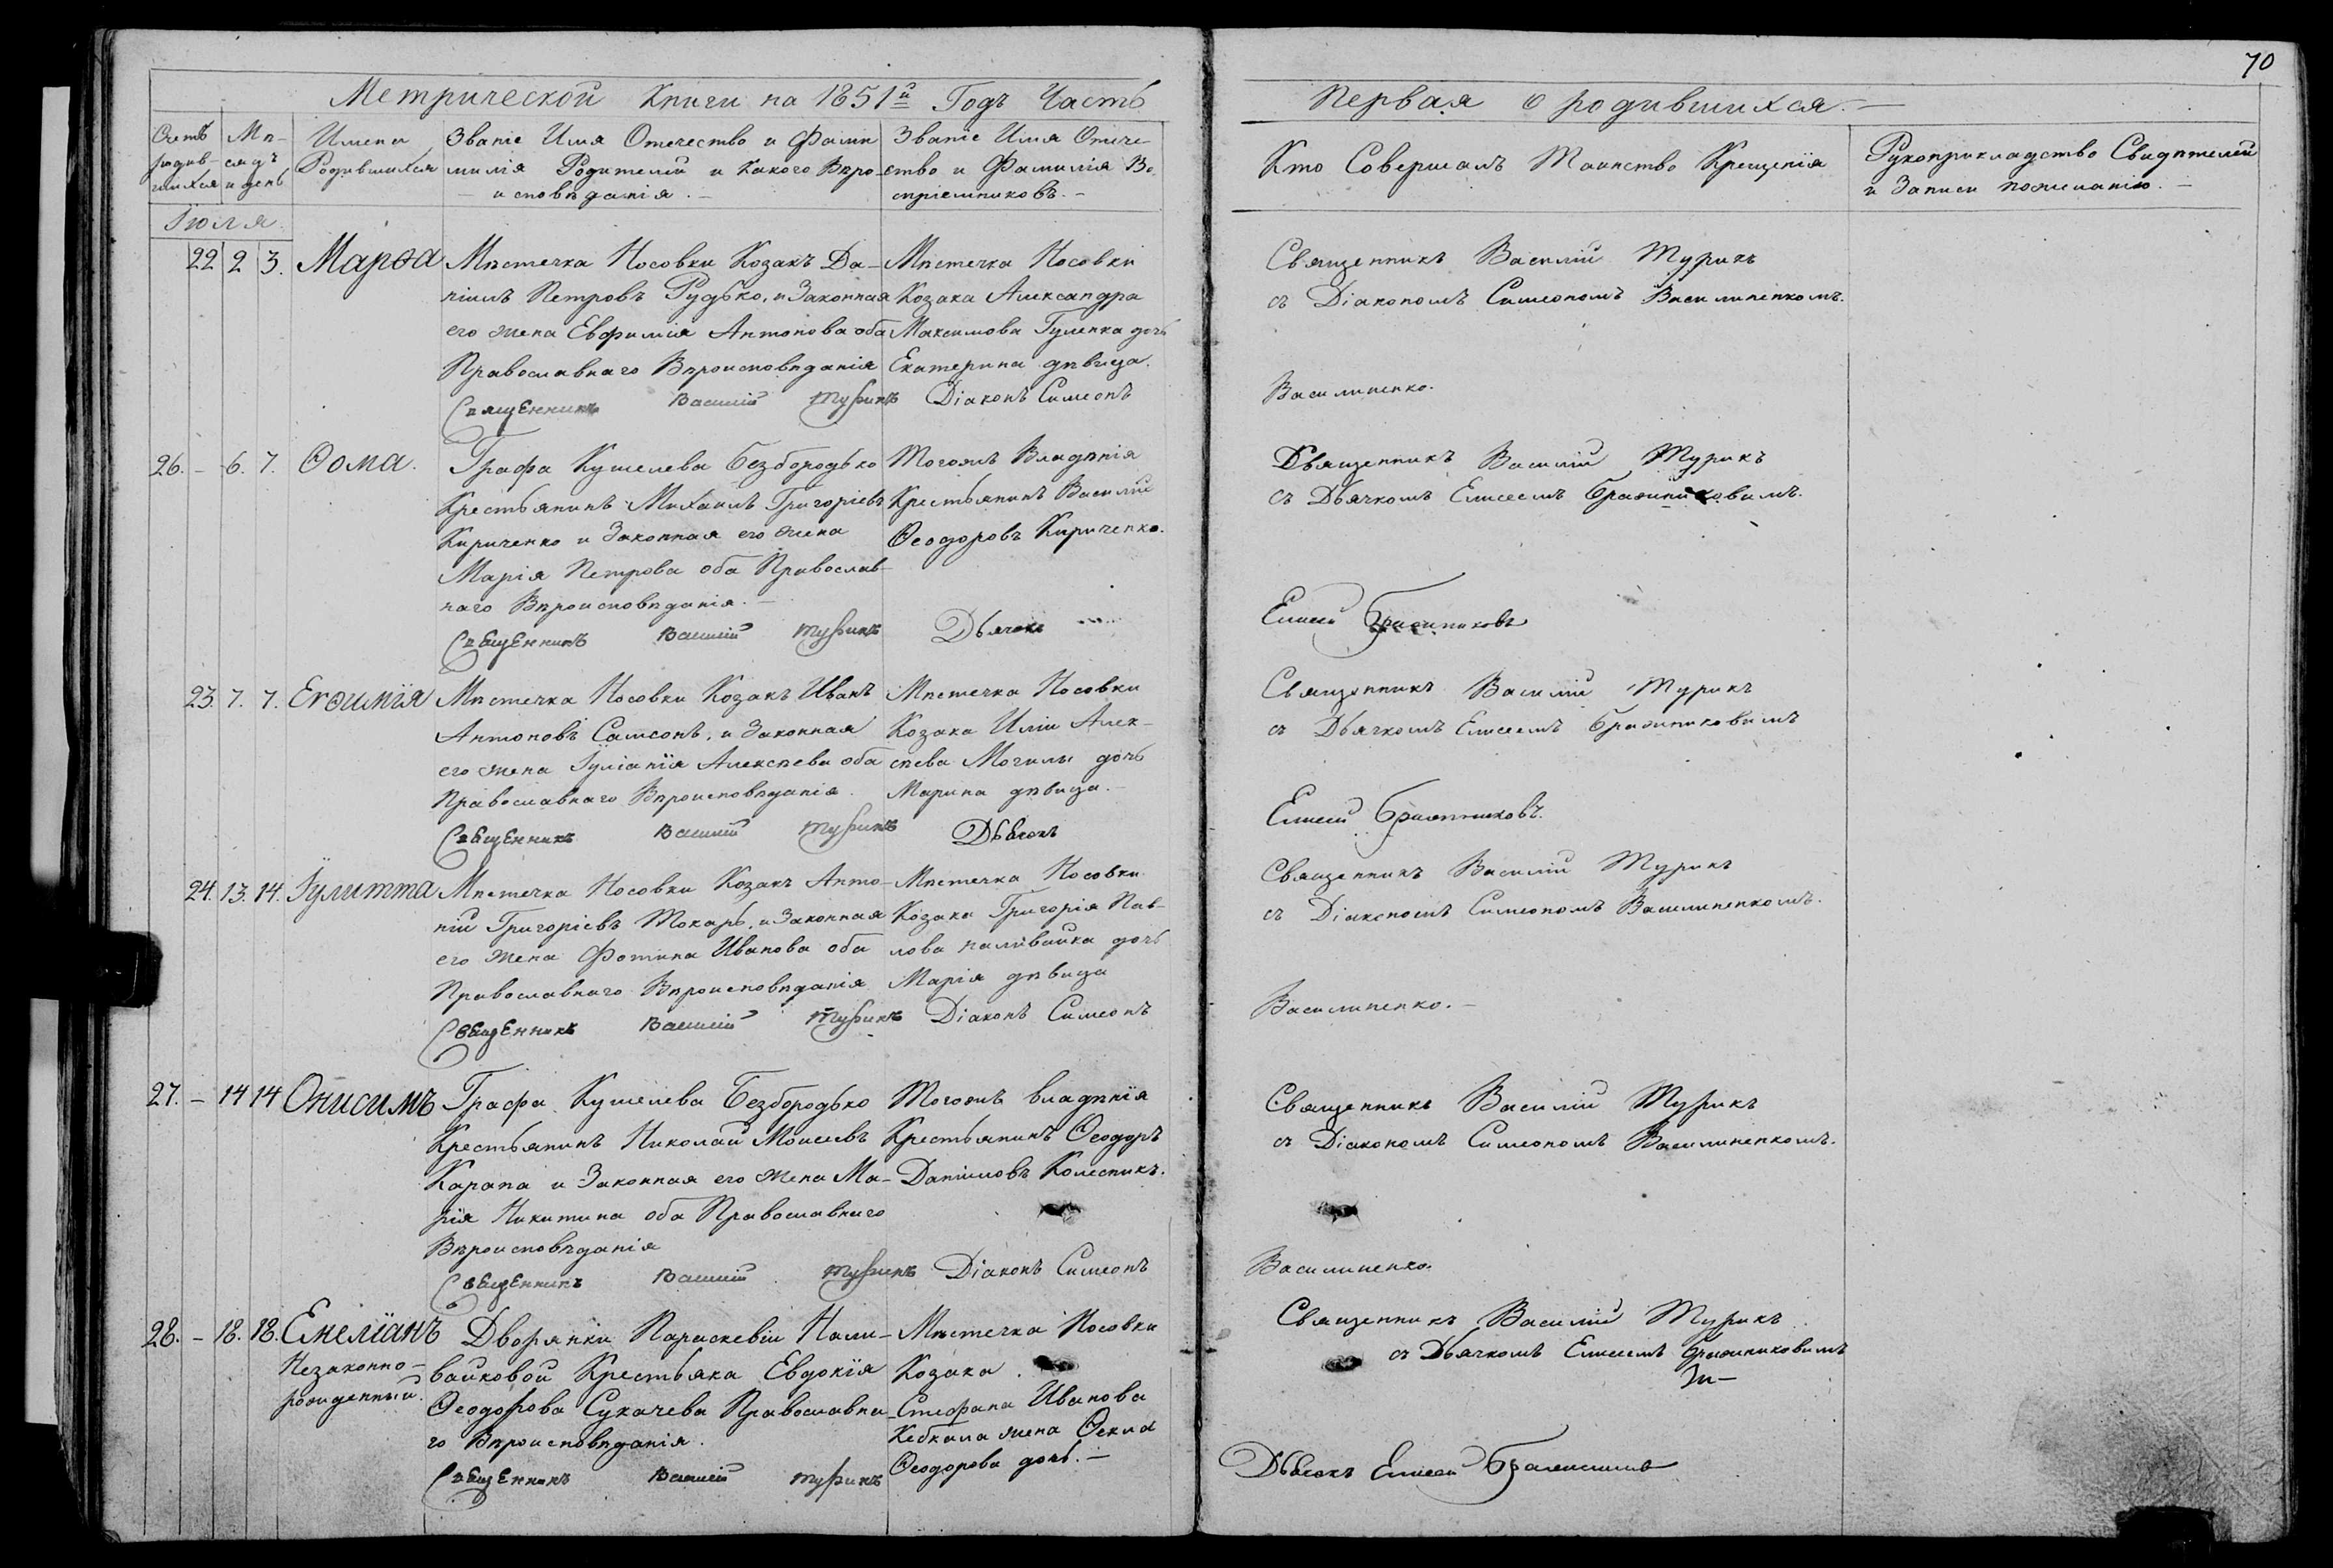 70
Метрической Книги на 1851й Годъ Часть
Первая о родившихся.
Счетъ родив-шихся
Мѣ-сяцъ и день
Имена Родившихся
Званіе Имя Отечество и Фами
милія Родителей и Какого Вѣро-
исповѣданія.
Званіе Имя Отече-
ство и Фамилія Во
спріемниковъ.
Кто Совершалъ Таинство Крещенія
Рукоприкладство Свидѣтелей
и Записи по желанію.
Іюля
22 2 3. Марѳа
Мѣстечка Носовки Козакъ Да-
ніилъ Петровъ Рудько, и Законная
его жена Евфимія Антонова оба
Православнаго Вѣроисповѣданія
Мѣстечка Носовки
Козака Александра
Максимова Гуленка дочь
Екатерина дѣвица.
Священникъ Василій Турикъ
съ Діакономъ Симеономъ Василиненкомъ.
Священникъ Василій Турикъ Діаконъ Симеонъ
Василиненко.
26. – 6. 7. Ѳома.
Графа Кушелева Безбородько
Крестьянинъ Михаилъ Григоріевъ
Кириченко и Законная его жена
Марія Петрова оба Православ-
наго Вѣроисповѣданія.
Тогожъ Владѣнія
Крестьянинъ Василій
Ѳеодоровъ Кириченко.
Священникъ Василій Турикъ
съ Дьячкомъ Елисеемъ Бражниковымъ.
Священникъ Василій Турикъ Дьячокъ
Елисей Бражниковъ
23. 7. 7. Евѳимія
Мѣстечка Носовки Козакъ Иванъ
Антоновъ Самсонъ, и Законная
его жена Іуліанія Алексѣева оба
Православнаго Вѣроисповѣданія.
Мѣстечка Носовки
Козака Иліи Алек-
сѣева Могилы дочь
Марина дѣвица.
Священникъ Василій Турикъ
съ Дьячкомъ Елисеемъ Бражниковымъ
Священникъ Василій Турикъ Дьячокъ
Елисей Бражниковъ.
24. 13. 14. Іулитта
Мѣстечка Носовки Козакъ Анто-
ній Григоріевъ Токарь, и Законная
его жена Фотина Иванова оба
Православнаго Вѣроисповѣданія
Мѣстечка Носовки
Козака Григорія Пав-
лова наливайка дочь
Марія дѣвица
Священникъ Василій Турикъ
съ Діакономъ Симеономъ Василиненкомъ.
Священникъ Василій Турикъ Діаконъ Симеонъ
Василиненко.
27. – 14 14 Онисимъ
Графа Кушелева Безбородько
Крестьянинъ Николай Моисеевъ
Карапа и Законная его жена Ма-
рія Никитина оба Православнаго
Вѣроисповѣданія
Тогожъ владѣнія
Крестьянинъ Ѳеодоръ
Даниловъ Колесникъ.
Священникъ Василій Турикъ
съ Діакономъ Симеономъ Василиненкомъ.
Священникъ Василій Турикъ Діаконъ Симеонъ
Василиненко.
28. – 18. 18. Емеліанъ
Незаконно-
рожденный.
Дворянки Параскевіи Нали-
вайковой Крестьяка Евдокія
Ѳеодорова Сукачева Православна-
го Вѣроисповѣданія.
Мѣстечка Носовки
Козака
Стефана Иванова
Кебкала жена Ѳекла
Ѳеодорова дочь.
Священникъ Василій Турикъ
съ Дьячкомъ Елисеемъ Бражниковымъ
Священникъ Василій Турикъ
Дьячокъ Елисей Бражниковъ